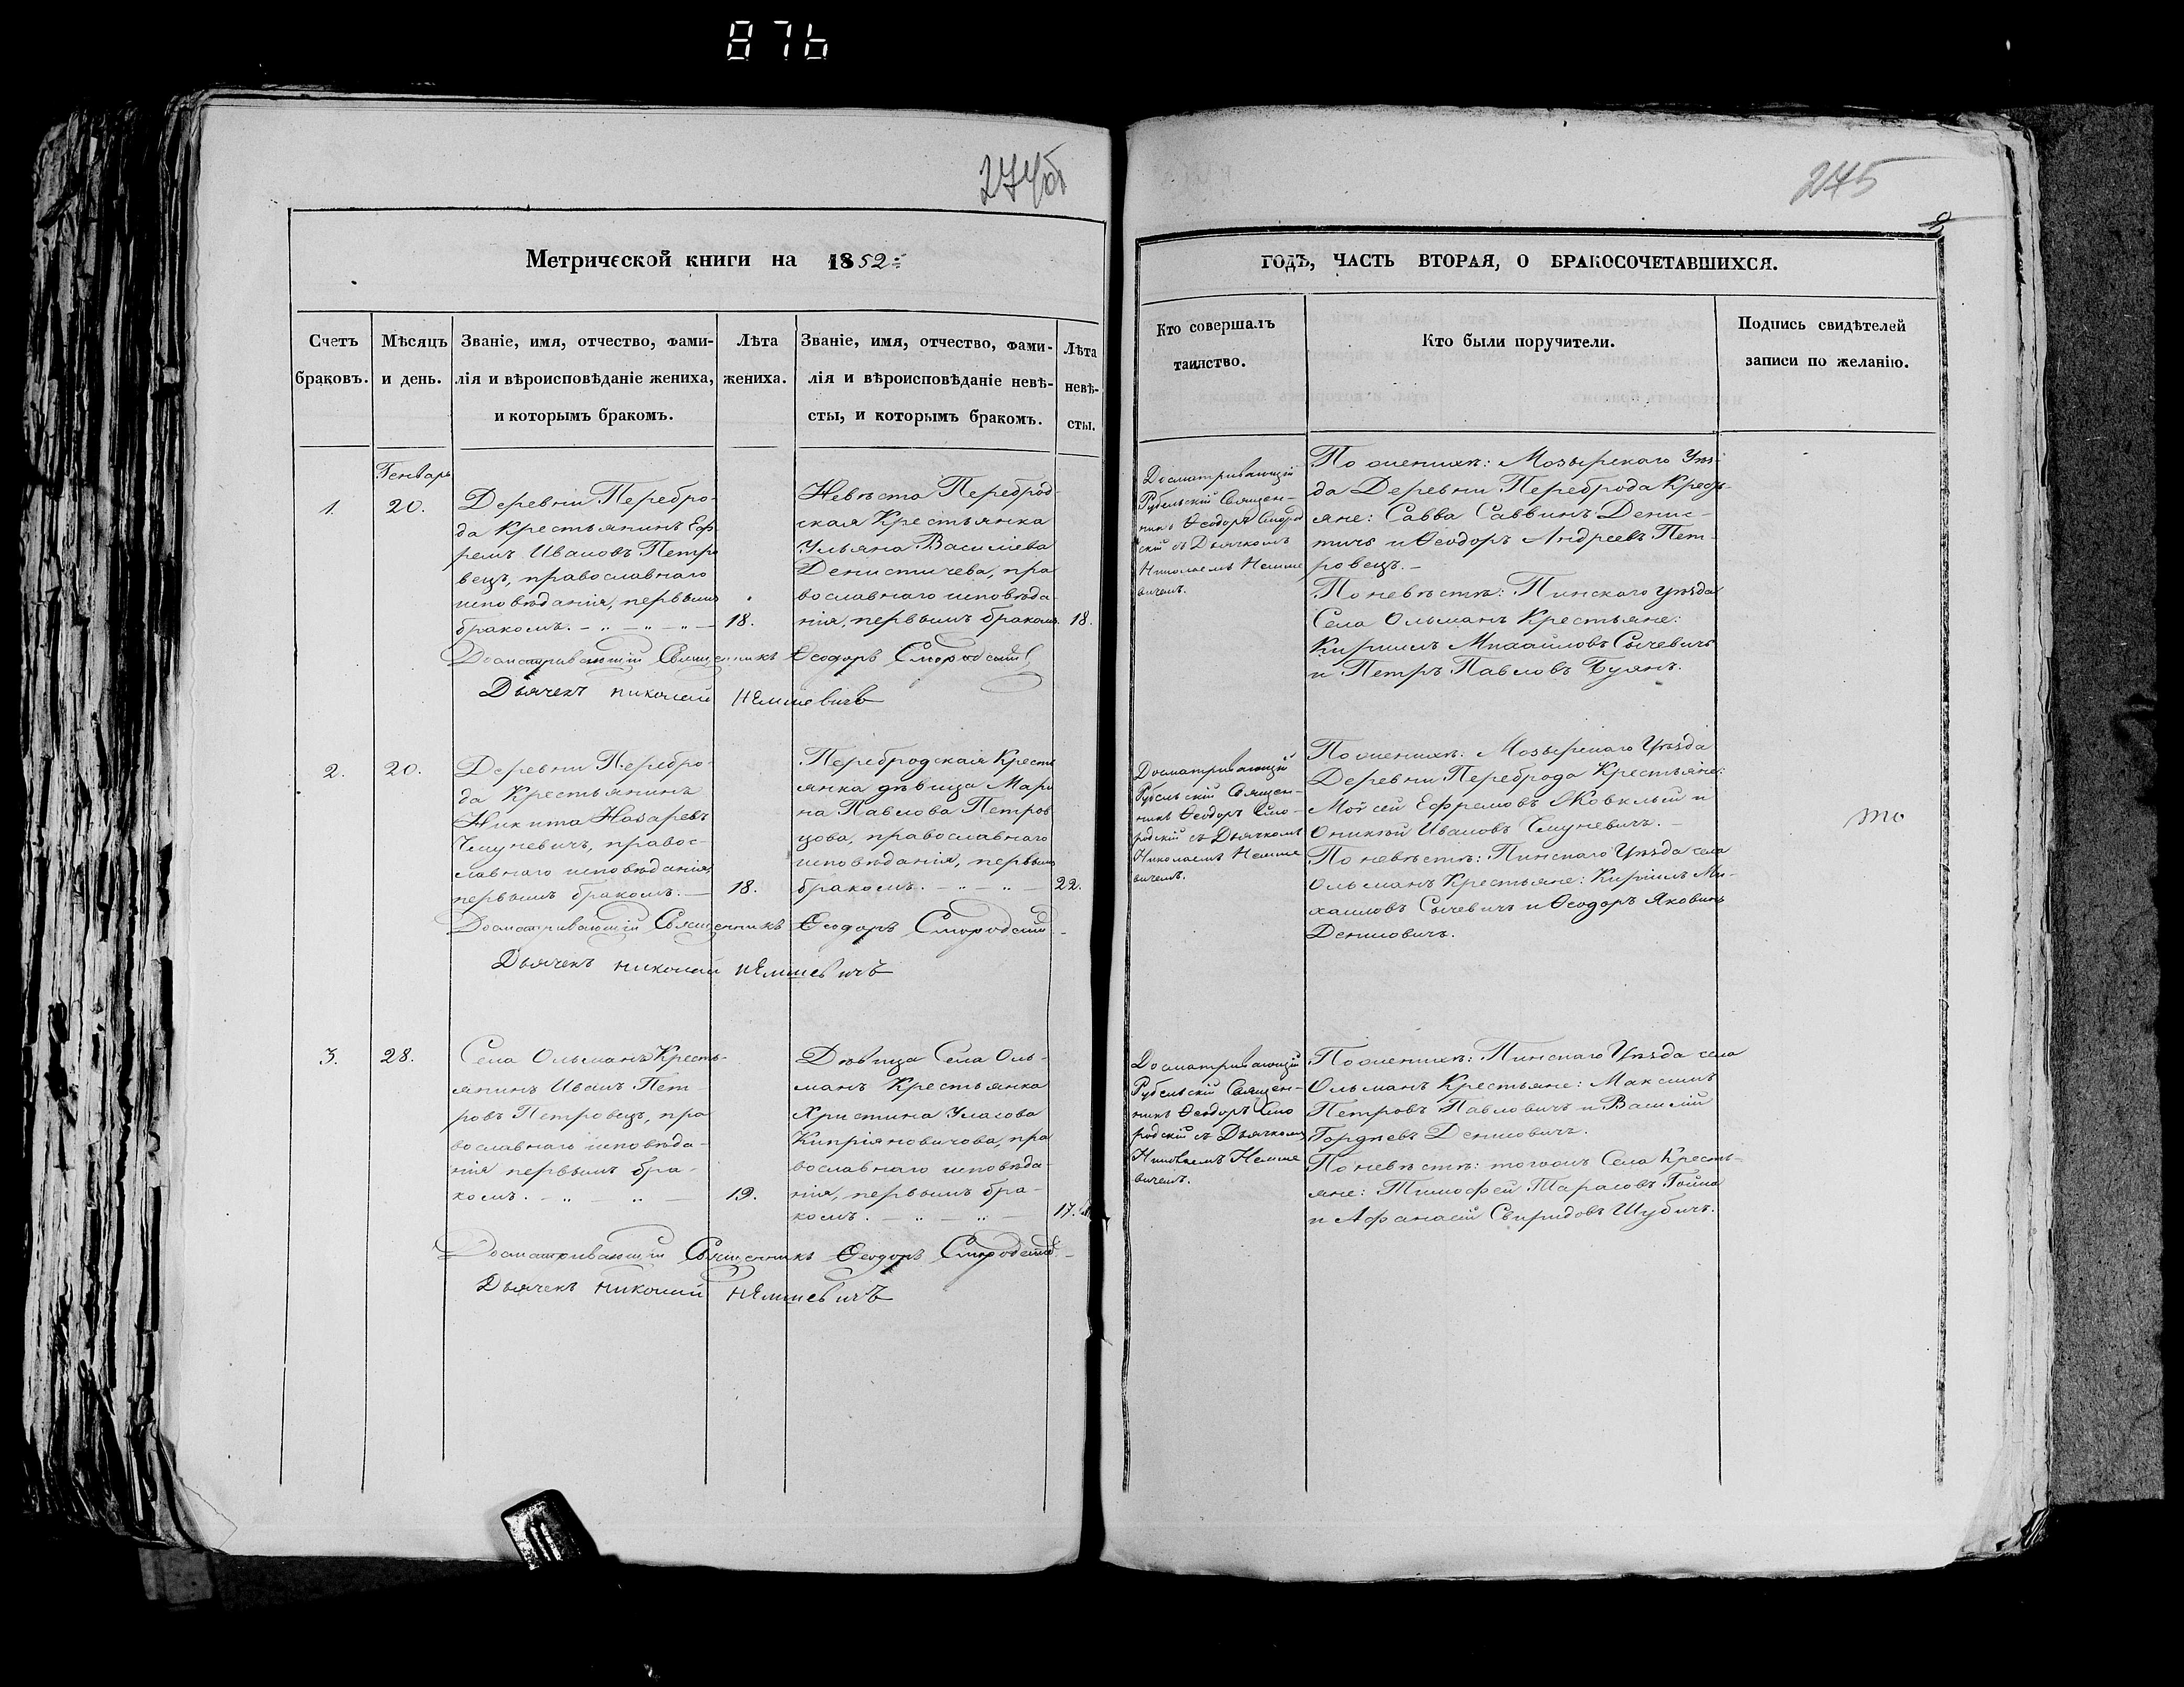 876
274об
Метрической книги на 1852
Счетъ браковъ.
Мѣсяцъ и день.
Званіе, имя, отчество, фами-
лія и вѣроисповѣданіе жениха,
и которымъ бракомъ.
Лѣта жениха.
Званіе, имя, отчество, фами-
лія и вѣроисповѣданіе невѣ-
сты, и которымъ бракомъ.
Лѣта невѣ-
сты.
Генварь
1.
20.
Деревни Перебро-
да Крестьянинъ Еф
ремъ Ивановъ Петро
вецъ, православнаго
исповѣданія, первымъ
бракомъ.
18.
Невѣста Переброд-
ская Крестьянка
Ульяна Василіева
Денистичева, пра
вославнаго исповѣда
нія, первымъ бракомъ.
18.
Досматривающій Священникъ Ѳеодоръ Смородскій
Дьячекъ николай нѣмшевичъ
2.
20.
Деревни Перебро-
да Крестьянинъ
Никита Назаревъ
Чмуневичъ, правос-
лавнаго исповѣданія,
первымъ бракомъ.
18.
Перебродская Кресть
янка дѣвица Мари
на Павлова Петров
цова, православнаго
исповѣданія, первымъ
бракомъ.
22.
Досматривающій Священникъ Ѳеодоръ Смородскій
Дьячекъ николай нѣмшевичъ
3.
28.
Села Ольманъ Кресть-
янинъ Иванъ Пет-
ровъ Петровецъ, пра
вославнаго исповѣда-
нія первымъ бра-
комъ.
19.
Дѣвица Села Оль-
манъ Крестьянка
Христина Уласова
Кипріяновичова, пра
вославнаго исповѣда-
нія, первымъ бра-
комъ.
17.
Досматривающій Священникъ Ѳеодоръ Смородскій
Дьячекъ николай нѣмшевичъ
275
годъ, часть вторая, о бракосочетавшихся.
Кто совершалъ
таинство.
Кто были поручители.
Подпись свидѣтелей
записи по желанію.
Досматривающій
Рубельскій Священ-
никъ Ѳеодоръ Смород
скій съ Дьячкомъ
Николаемъ Немше
вичемъ.
По женихѣ: Мозырскаго Уѣз-
да Деревни Переброда Кресть-
яне: Савва Саввинъ Денис-
тичъ и Ѳеодоръ Андреевъ Пет-
ровецъ.
По невѣстѣ: Пинскаго уѣзда
Села Ольманъ Крестьяне:
Кириллъ Михайловъ Сычевичъ
и Петръ Павловъ Буянъ.
Досматривающій
Рубельскій Священ-
никъ Ѳеодоръ Смо-
родскій съ Дьячкомъ
Николаемъ Немше
вичемъ.
По женихѣ: Мозырскаго Уѣзда
Деревни Переброда Крестьяне:
Мойсей Ефремовъ
Ивановъ Чмуневичъ.
По невѣстѣ: Пинскаго Уѣзда села
Ольманъ Крестьяне: Кириллъ Ми-
хайловъ Сычевичъ и Ѳеодоръ Яковинъ
Денисовичъ.
Досматривающій
Рубельскій Священ-
никъ Ѳеодоръ Смо
родскій съ Дьячкомъ
Николаемъ Немше
вичемъ.
По женихѣ: Пинскаго Уѣзда села
Ольманъ Крестьяне: Максимъ
Петровъ Павловичъ и Василій
Гордѣевъ Денисовичъ.
По невѣстѣ: тогожъ Села Кресть-
яне: Тимофей Тарасовъ
и Афанасій Свиридовъ Шубичъ.